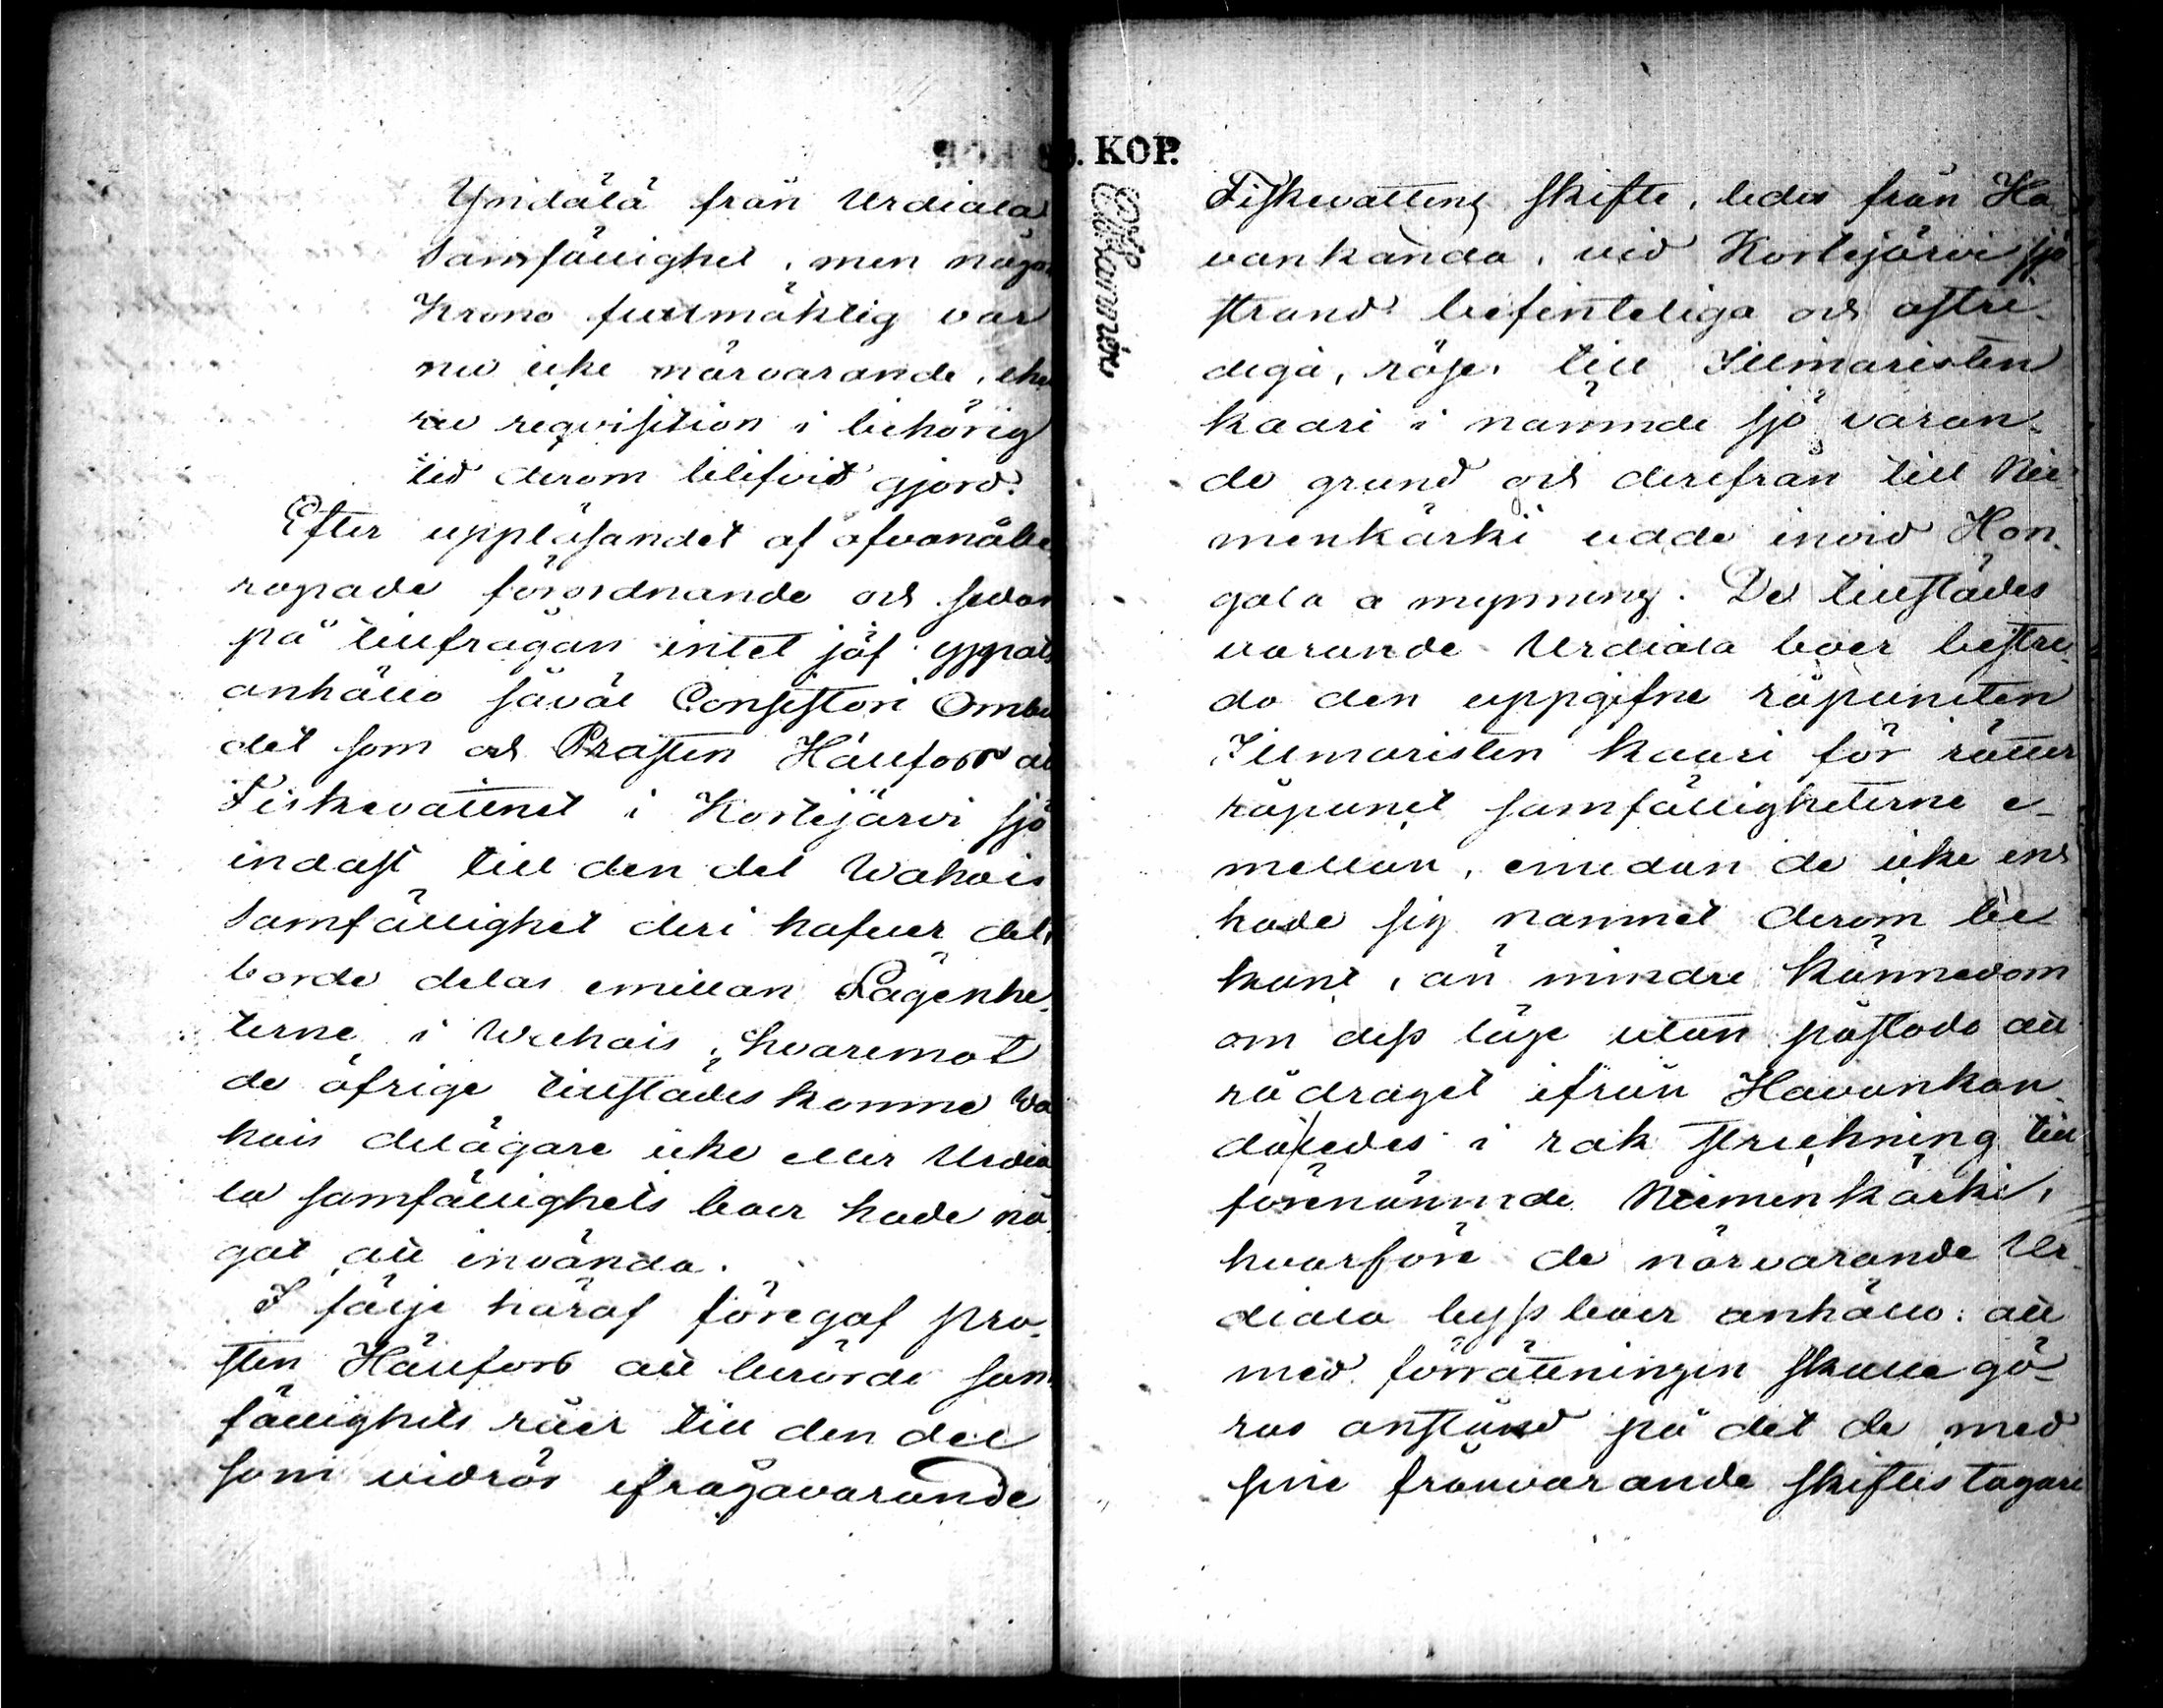 KOP.
Yridälä från Urdiala
Samfällighet, men någon
Krono fullmäktig var
nu icke närvarande, ehu
ru reqvisition i behörig
tid derom blifvit gjord.
Efter uppläsandet af åfvanåbe
ropade förordnande och sedan
på tillfrågan intet jäf yppats
anhållo såväl Consistori Ombu
det som och Prosten Hällfors at
Fiskevattnet i Kortejärvi sjö
indast till den del Wahois
Samfällighet deri hafver del,
borde delas emillan Lägenhe
terne i Wahais, hvaremot
de öfrige tillstädes komne Wa
hais delägare icke eller Urdia
la samfällighets boer hade nå
got att invända.
I följe häraf föregaf pro
sten Hällfors att berörde sam
fällighets råer till den del
som vidrör ifrågavarande
Fiskevattens skifte, ledes från Ha
vankanda, vid Kortejärvi sjö
strand befinteliga och ostri
diga, röse, till Illmaristen
kaari i nämnde sjö varan
de grund och derifrån till Nie
menkärki udde invid Hon
gola å mynning. De tillstädes
varande Urdiala boer bestre
do den uppgifne råpuncten
Illmaristen kaari för rätter
råpunct samfälligheterne e
mellan, emedan de icke ens
hade sig namnet derom be
kant, än mindre kännedom
om dess läge utan påstodo att
rådraget ifrån Havankan
da ledes i rak streckning till
förenämnde Niemenkärki,
hvarföre de närvarande Ur
diala byss boer anhållo: att
med förrättningen skulle gö
ras anstånd på det de med
sine frånvarande skiftes tagare